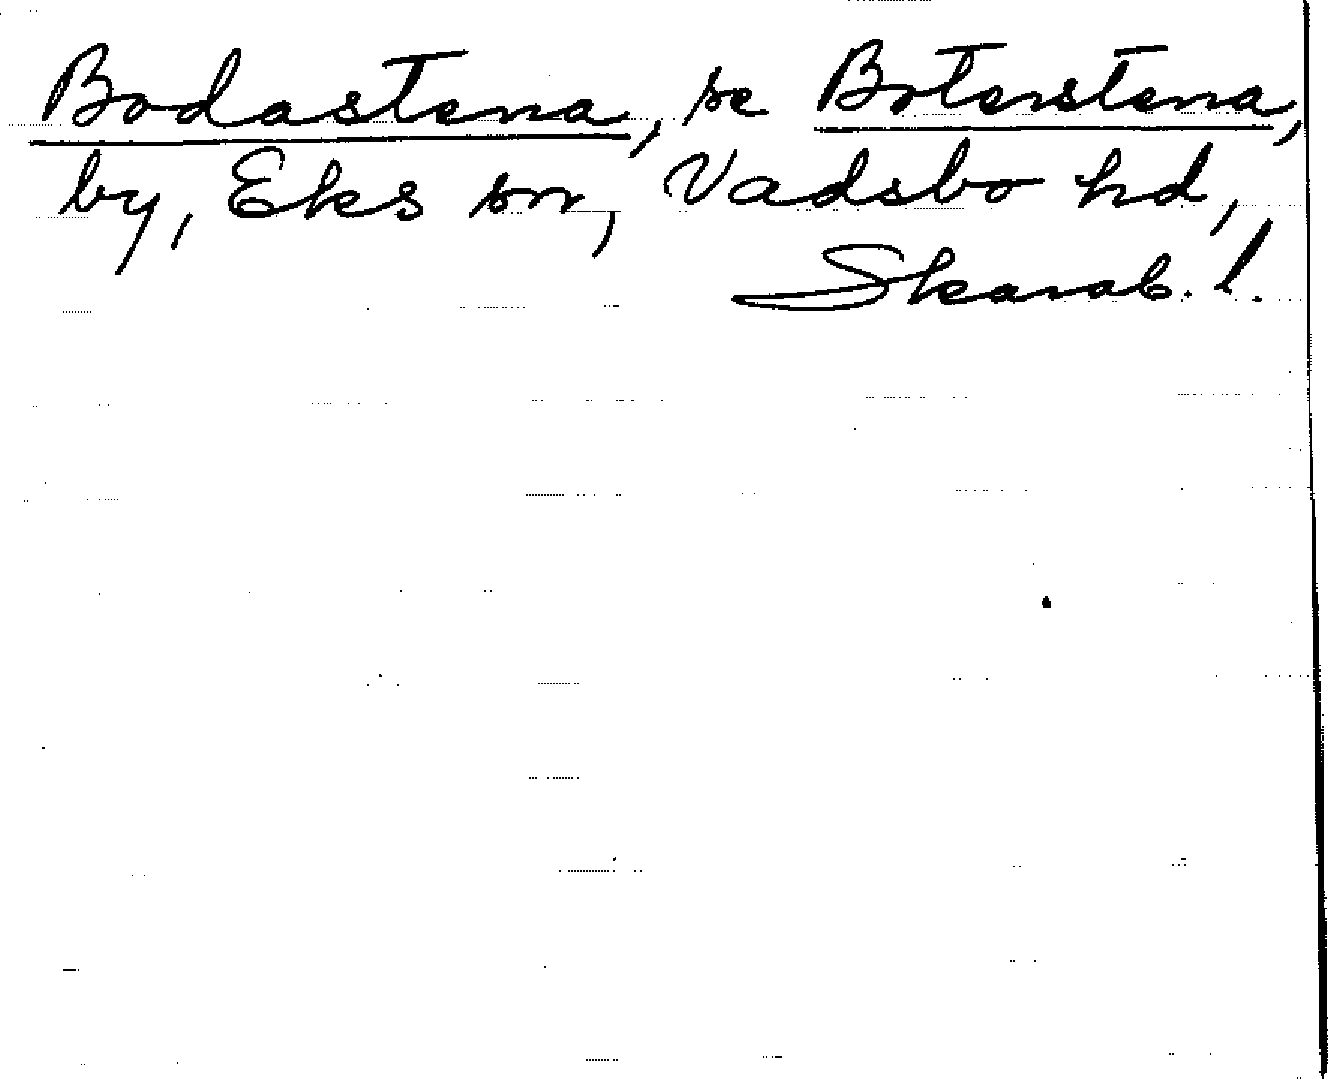 Bodastena, se Boterstena,
by, Eks sn, Vadsbo hd,
Skarab. l.